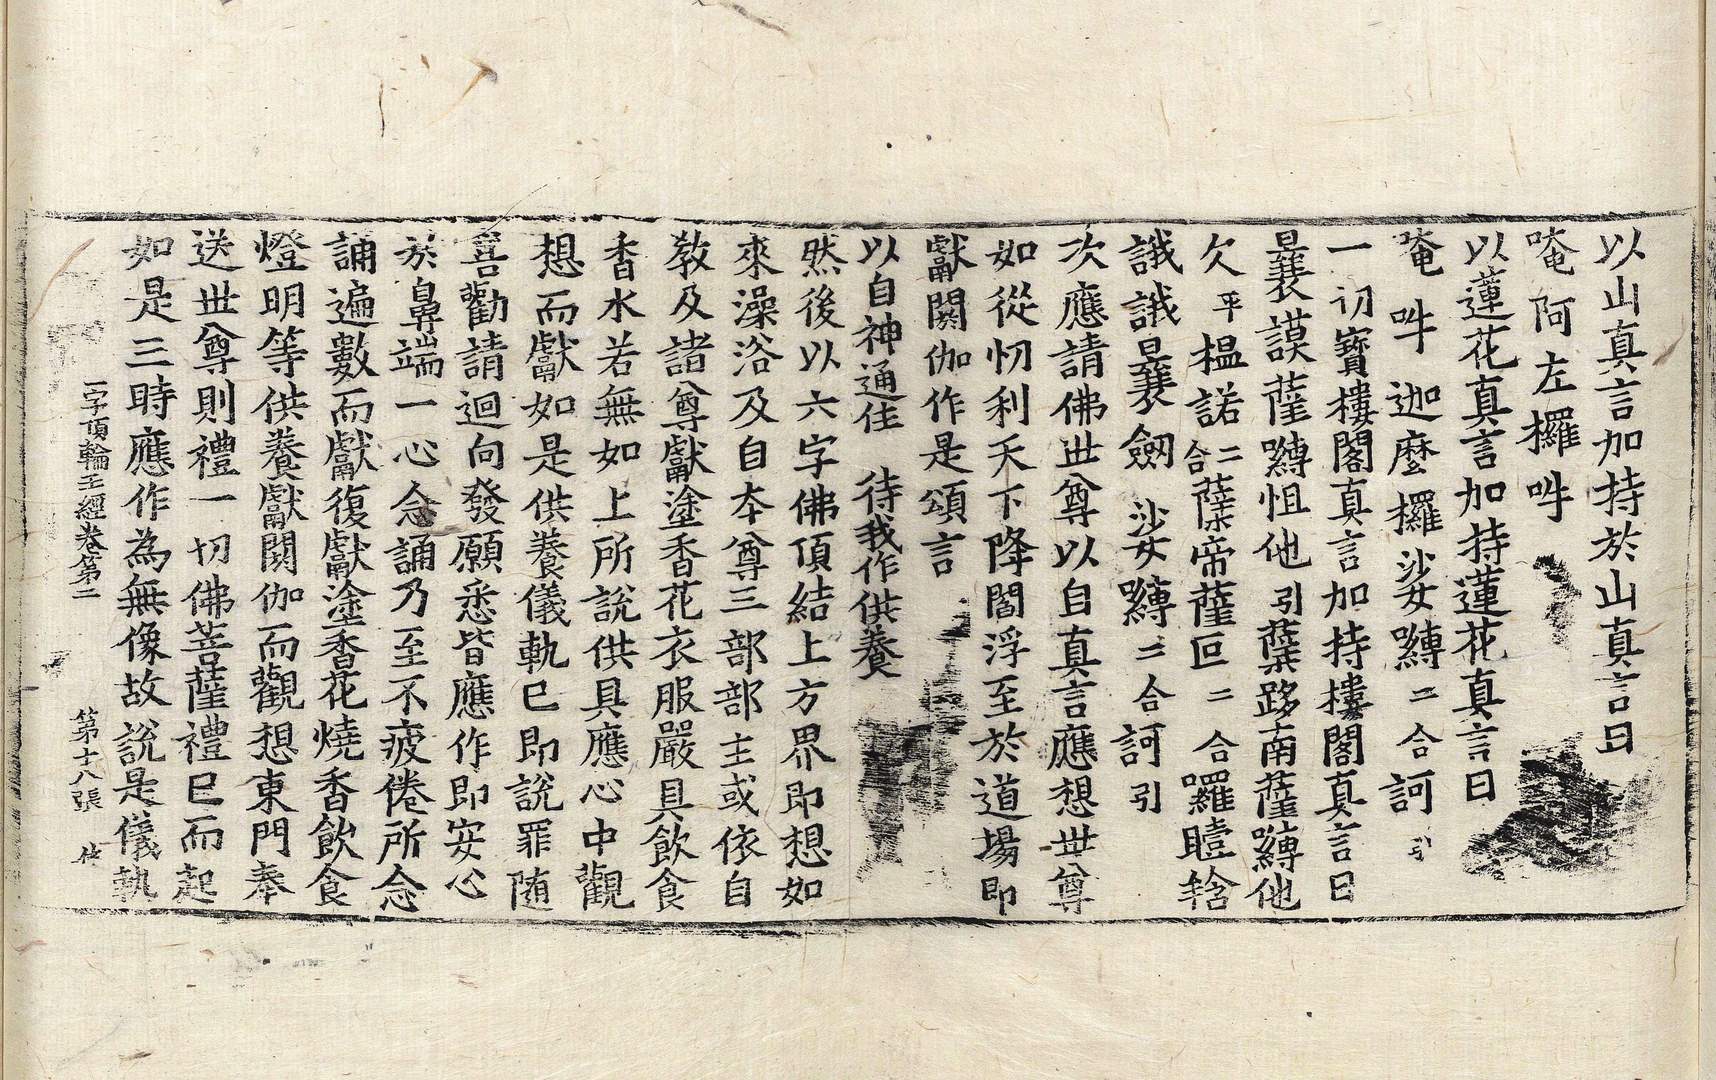 以山真言加持於山真言曰
唵阿左攞吽
以蓮花真言加持蓮花真言曰
唵吽迦麽攞娑嚩二合訶引
一切寶樓閣真言加持樓閣真言曰
曩莫薩嚩怛他引蘖跢南薩嚩他
欠平榅諾二合蘖帝薩叵二合囉瞌𤚥
誐誐曩劔娑嚩二合訶引
次應請佛世尊以自真言應想世尊
如從忉利天下降閻浮至於道場即
獻閼伽作是頌言
以自神通住　待我作供養
然後以六字佛頂結上方界即想如
來澡浴及自本尊三部部主或依自
教及諸尊獻塗香花衣服嚴具飲食
香水若無如上所說供具應心中觀
想而獻如是供養儀軌已即說罪随
喜勸請迴向發願悉皆應作即安心
於鼻端一心念誦乃至不疲倦所念
誦遍數而獻復獻塗香花燒香飲食
燈明等供養獻閼伽而觀想東門奉
送世尊則禮一切佛菩薩禮已而起
如是三時應作為無像故說是儀軌
一字頂輪王經卷第二　第十八張